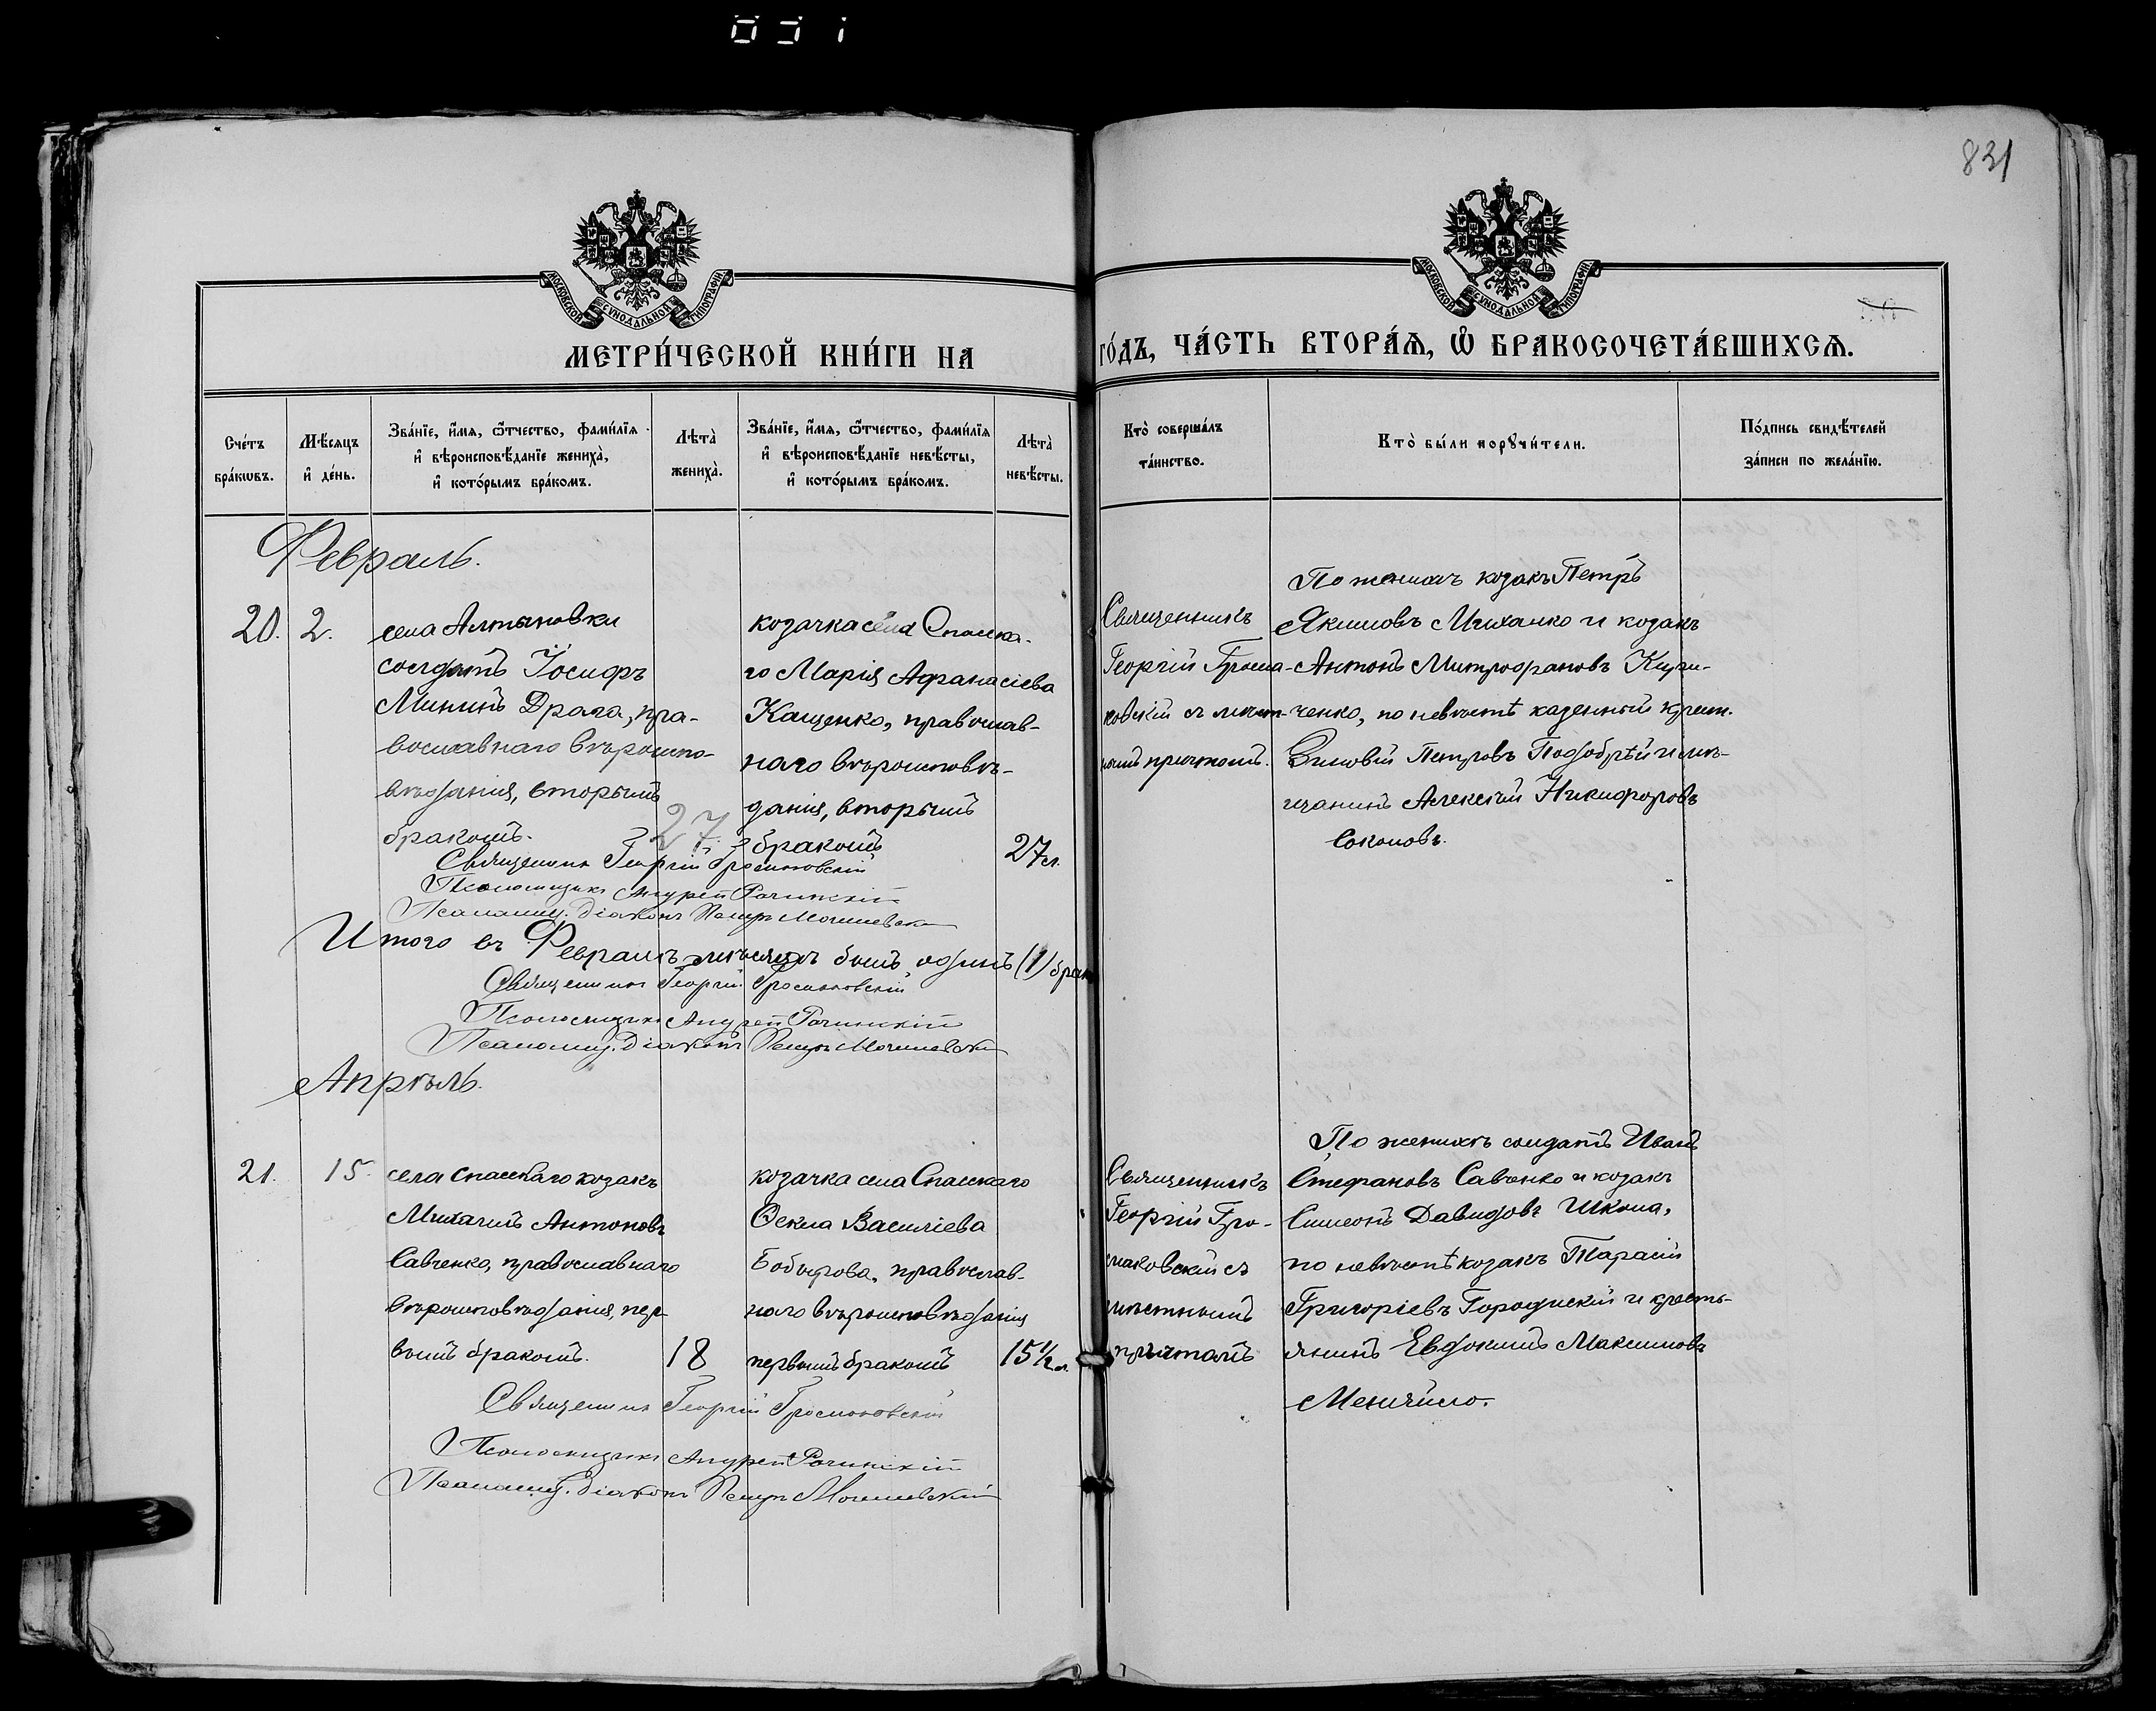 831
МОСКОВСКОЙ СѴНОДАЛЬНОЙ ТИПОГРАФІИ
МОСКОВСКОЙ СѴНОДАЛЬНОЙ ТИПОГРАФІИ
МЕТРИ́ЧЕСКОЙ КНИ́ГИ НА
ГО́ДЪ, ЧА́СТЬ ВТОРА́Я, Ѡ БРАКОСОЧЕТА́ВШИХСЯ.
Сче́тъ бра́кѡвъ.
Мѣ́сяцъ и де́нь.
Зва́нїе, и́мя, ѻ́тчество, фами́лїя и вѣроисповѣ́данїе жениха̀, и кото́рымъ бра́комъ.
Лѣта̀ жениха̀.
Зва́нїе, и́мя, ѻ́тчество, фами́лїя и вѣроисповѣ́данїе невѣ́сты, и кото́рымъ бра́комъ.
Лѣта̀ невѣ́сты.
Кто̀ соверша́лъ та́инство.
Кто̀ бы́ли порꙋчи́тели.
По́дпись свидѣ́телей за́писи по жела́нїю.
Февраль.
20.
2.
села Алтыновки
солдатъ Іосифъ
Мининъ Драга, пра-
вославнаго вѣроиспо-
вѣданія, вторымъ
бракомъ.
27
козачка села Спасска-
го Марія Афанасіева
Кащенко, православ-
наго вѣроисповѣ-
данія, вторымъ
бракомъ
27 л.
Священникъ
Георгій Грома-
ковскій съ мѣст-
нымъ причтомъ.
По женихѣ козакъ Петръ
Якимовъ Миханко и козакъ
Антонъ Митрофановъ
ченко, по невѣстѣ казенный крест.
Зиновій Петровъ Подобрѣй и мѣ-
щанинъ Алексѣй Никифоровъ
Соколовъ.
Священникъ Георгій Громаковскій
Псаломщикъ Андрей Рачинскій
Псаломщ. Діаконъ Петръ
Итого въ Февралѣ мѣсяцѣ былъ одинъ (1) бракъ
Священникъ Георгій Громаковскій
Псаломщикъ Андрей Рачинскій
Псаломщ. Діаконъ Петръ
Апрѣль.
21.
15.
села Спасскаго козакъ
Михаилъ Антоновъ
Савченко, православнаго
вѣроисповѣданія, пер-
вымъ бракомъ.
18
козачка села Спасскаго
Ѳекла Василіева
Бобырова, православ-
наго вѣроисповѣданія
первымъ бракомъ
15½ л.
Священникъ
Георгій Гро-
маковскій съ
мѣстнымъ
причтомъ
По женихѣ солдатъ Иванъ
Стефановъ Савченко и козакъ
Симеонъ Давидовъ Школа,
по невѣстѣ козакъ Тарасій
Григоріевъ Городискій и кресть-
янинъ Евдокимъ Максимовъ
Менчило.
Священникъ Георгій Громаковскій
Псаломщикъ Андрей Рачинскій
Псаломщ. Діаконъ Петръ